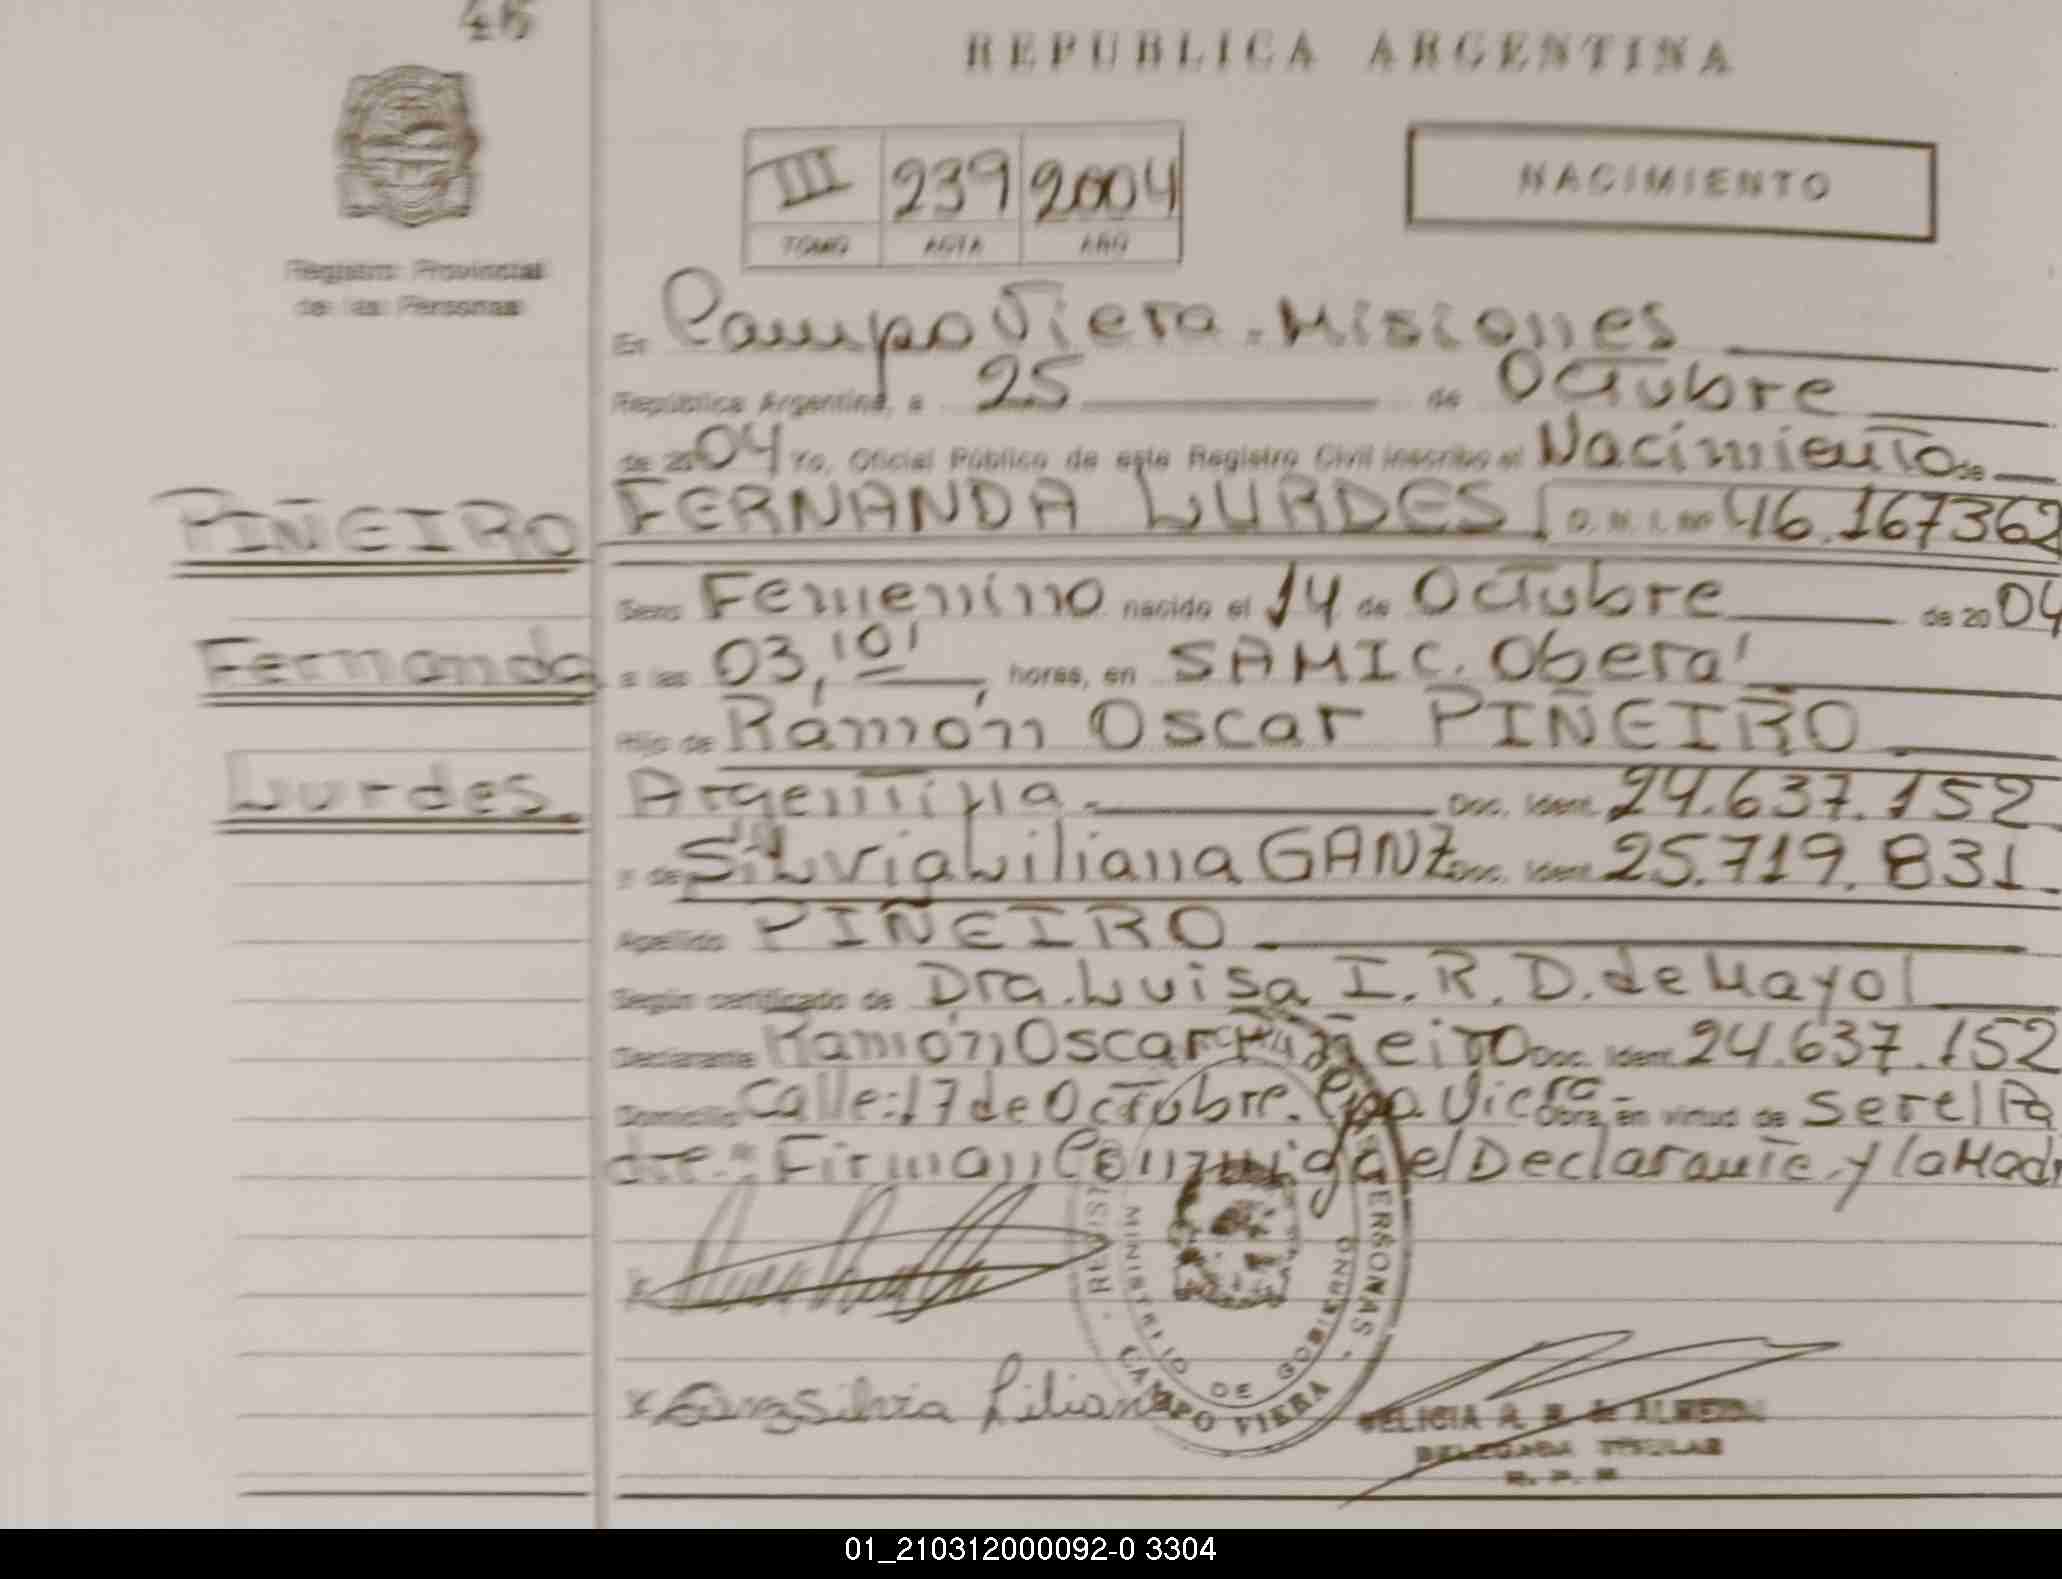 46
REPUBLICA ARGENTINA
III 239 2004
TOMO ACTA AÑO
NACIMIENTO
Registro Provincial
de las Personas
En Campo Viera - Misiones
República Argentina, a 25 de Octubre
de 2004 Yo, Oficial Público de este Registro Civil inscribo el Nacimiento de
PIÑEIRO FERNANDA LURDES D.N.I. Nº 46.167362
Sexo Femenino nacido el 14 de Octubre de 2004
Fernanda a las 03,10' horas, en SAMIC. Oberá
Hijo de Ramón Oscar PIÑEIRO
Lurdes. Argentina.- Doc. Ident. 24.637.152
y de Silvia Liliana GANZ Doc. Ident. 25.719.831.
Apellido PIÑEIRO
Según certificado de Dra. Luisa I. R. D. de Mayol
Declarante Ramón Oscar Piñeiro Doc. Ident. 24.637.152
Domicilio Calle: 17 de Octubre. Cpo Viera Obra en virtud de Ser el Pa
dre.- Firman Conmigo el Declarante y la Madr
PERSONAS
MINISTERIO DE GOBIERNO
CAMPO VIERA
x Ganz Silvia Liliana
FELICIA A. B. de ALMEIDA
DELEGADA TITULAR
R. P. P.
01_210312000092-0 3304